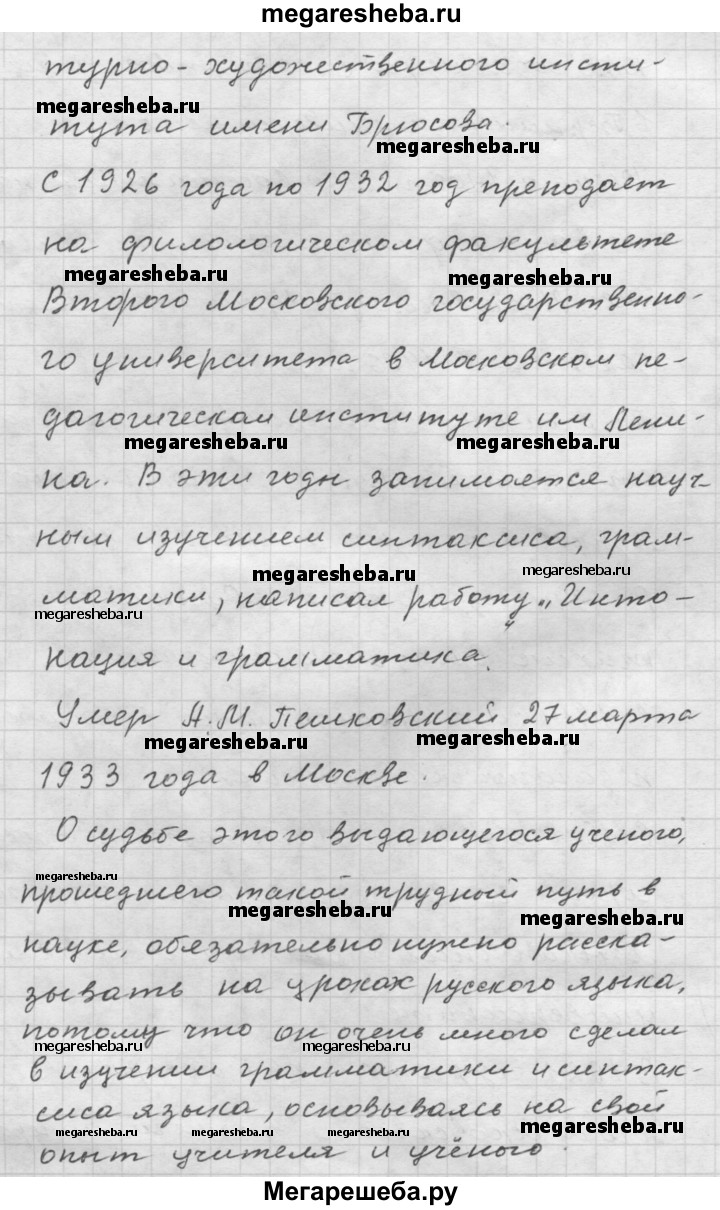 megaresheba.ru
турно-художественного инсти-
megaresheba.ru
тута имени Брюсова.
megaresheba.ru
С 1926 года по 1932 год преподает
на филологическом факультете
megaresheba.ru megaresheba.ru
Второго Московского государственно-
го университета в Московском пе-
дагогическом институте им Лени-
megaresheba.ru megaresheba.ru
на. В эти годы занимается науч-
ным изучением синтаксиса, грам-
megaresheba.ru megaresheba.ru
матики, написал работу „Инто-
megaresheba.ru
нация и грамматика“.
Умер А.М. Пешковский 27 марта
megaresheba.ru megaresheba.ru
1933 года в Москве.
О судьбе этого выдающегося ученого,
megaresheba.ru
прошедшего такой трудный путь в
megaresheba.ru megaresheba.ru
науке, обязательно нужно расска-
зывать на уроках русского языка,
потому что он очень много сделал
megaresheba.ru megaresheba.ru
в изучении грамматики и синтак-
сиса языка, основываясь на свой
megaresheba.ru megaresheba.ru megaresheba.ru megaresheba.ru
опыт учителя и учёного.
Мегарешеба.ру